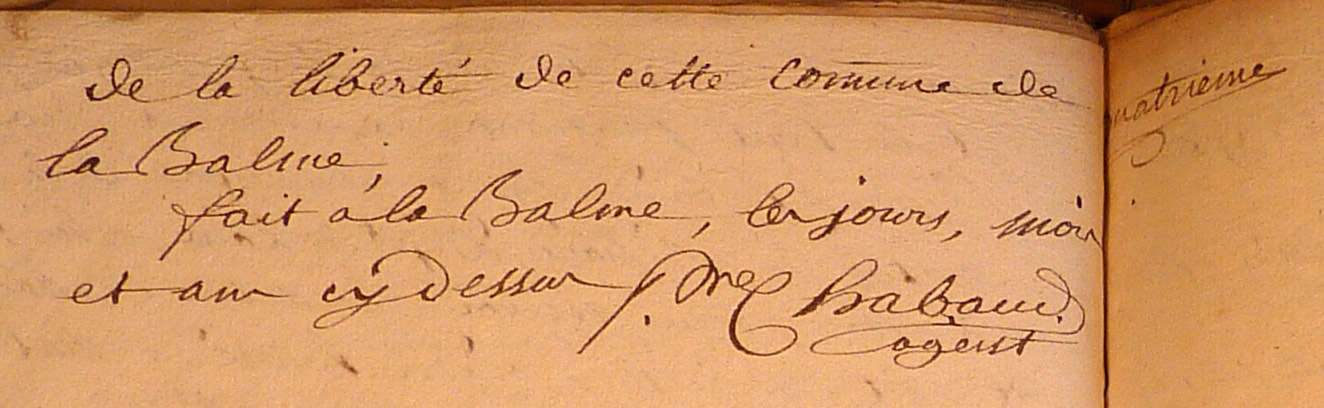 de la liberté de cette commune de
la Balme,
fait a la Balme, les jours, mois
et an cy dessus /. pre Chabaud.
agent
quatrieme